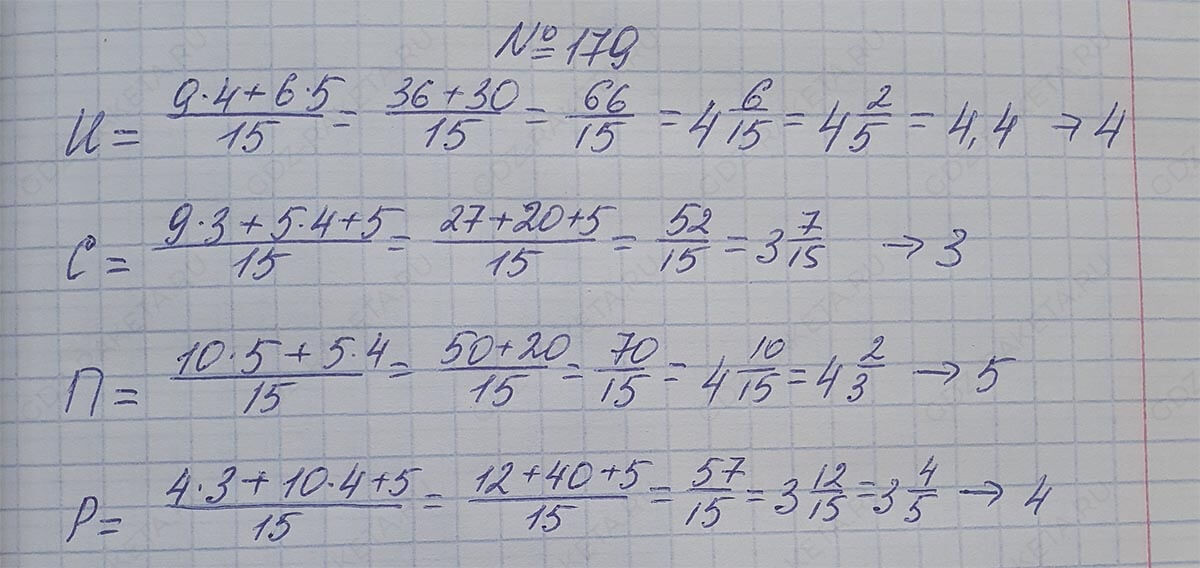 № 179
И = (9·4+6·5)/15 = (36+30)/15 = 66/15 = 4 6/15 = 4 2/5 = 4,4 → 4
С = (9·3+5·4+5)/15 = (27+20+5)/15 = 52/15 = 3 7/15 → 3
П = (10·5+5·4)/15 = (50+20)/15 = 70/15 = 4 10/15 = 4 2/3 → 5
Р = (4·3+10·4+5)/15 = (12+40+5)/15 = 57/15 = 3 12/15 = 3 4/5 → 4